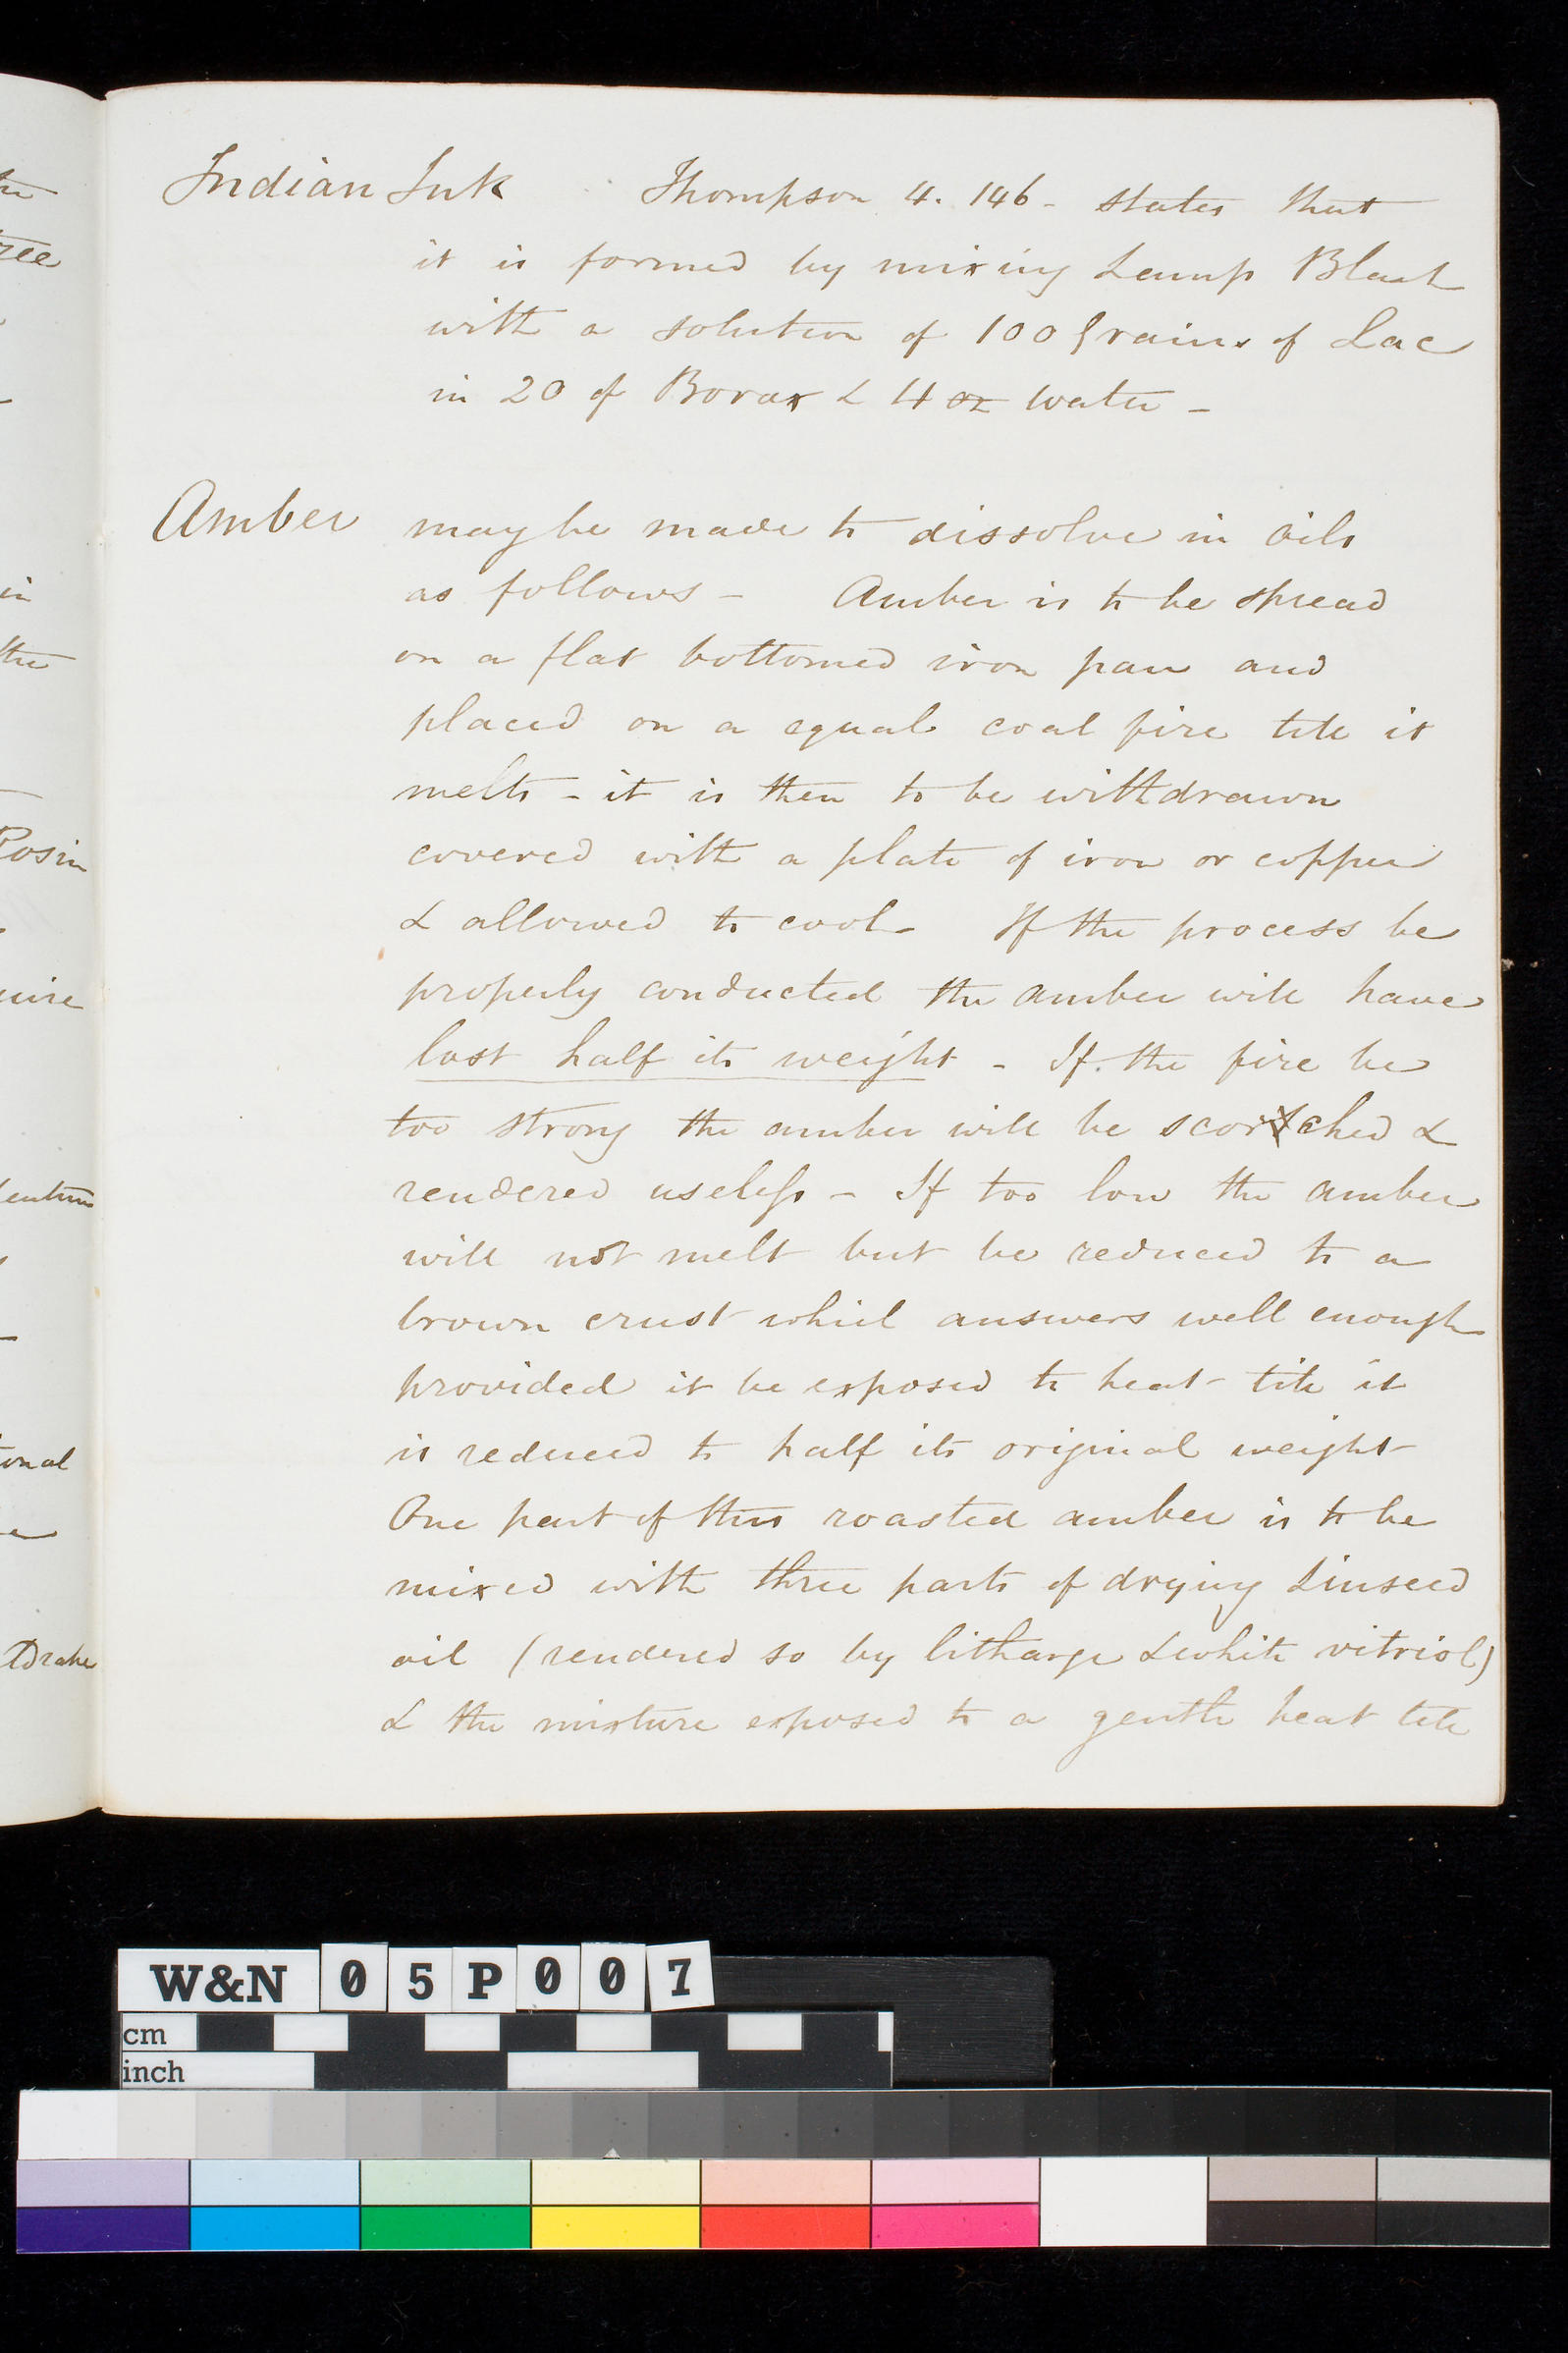 Indian Ink Thompson 4. 146 - states that
it is formed by mixing Lamp Black
with a solution of 100 Grains of Lac
in 20 of Borax & 4 oz water -
Amber may be made to dissolve in oils
as follows - Amber is to be spread
on a flat bottomed iron pan and
placed on a equal coal fire till it
melts - it is then to be withdrawn
covered with a plate of iron or copper
& allowed to cool - If the process be
properly conducted the amber will have
lost half its weight - If the fire be
too strong the amber will be scorched &
rendered useless - If too low the amber
will not melt but be reduced to a
brown crust which answers well enough
provided it be exposed to heat till it
is reduced to half its original weight
One part of this roasted amber is to be
mixed with three parts of drying Linseed
oil (rendered so by litharge & white vitriol)
& the mixture exposed to a gentle heat till
the
in
the
Rosin
onal
Drake
W&N 05P007
cm
inch